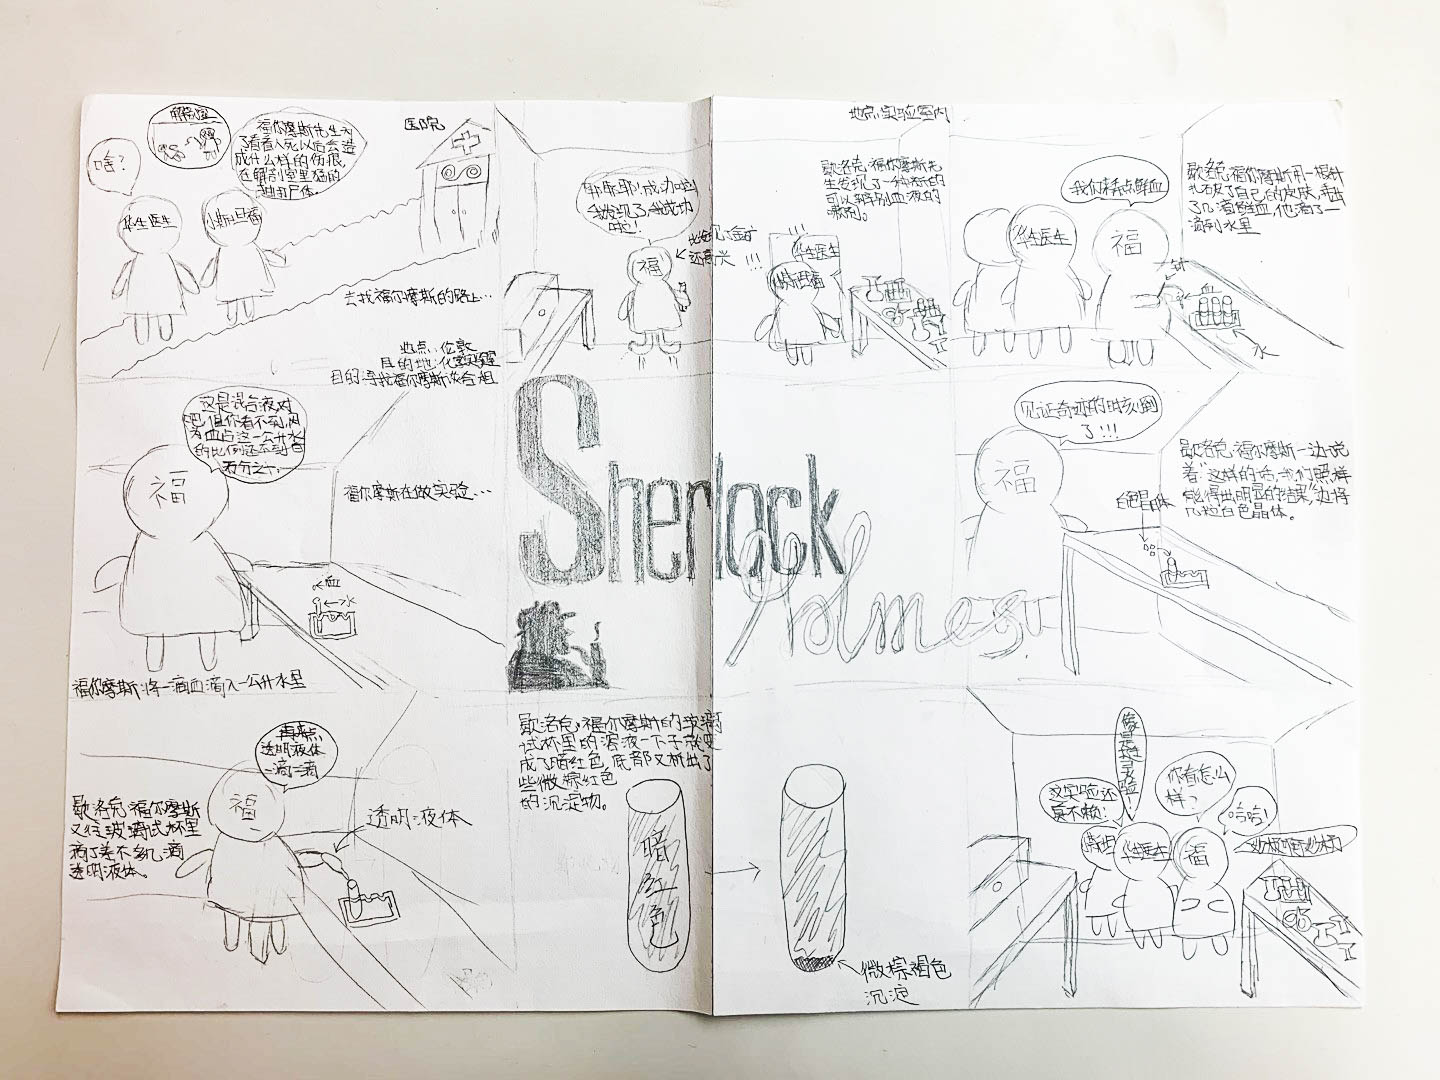 啥?
解剖室
福尔摩斯先生为
了看看人死以后会造
成什么样的伤痕,
在解剖室里猛的
抽打尸体。
医院
华生医生
小斯坦福
去找福尔摩斯的路上…
地点:伦敦
目的地:化学实验室
目的:寻找福尔摩斯谈合租
耶耶耶!成功啦
我发现了我成功
啦!
福
比发现金矿
还高兴 !!!
地点:实验室内
歇洛克·福尔摩斯先
生发现了一种新的
可以辨别血液的
试剂。
!!!
华生医生
斯坦福
我们来看点鲜血
华生医生
福
歇洛克·福尔摩斯用一根针
扎破了自己的皮肤,弄出
了几滴鲜血,他滴了一
滴到水里
针
血
水
这是混合液,对
吧,但你看不到,因
为血占这一公升水
的比例还不到百
万分之一。
福
福尔摩斯在做实验…
血
水
福尔摩斯将一滴血滴入一公升水里
Sherlock
Holmes
见证奇迹的时刻到
了!!!
福
白色晶体
歇洛克·福尔摩斯一边说
着“这样的话,我们照样
能得出明显的结果”,边将
几粒白色晶体。
再来点
透明液体
一滴二滴
福
歇洛克·福尔摩斯
又往玻璃试杯里
滴了差不多几滴
透明液体。
透明液体
歇洛克·福尔摩斯的玻璃
试杯里的溶液一下子就变
成了暗红色,底部又析出了
些微棕红色
的沉淀物。
暗红色
微棕褐色
沉淀
像是挺灵验!
这实验还
真不赖!
你看怎么
样?
哈哈!
妙极啊妙极
斯坦
华生医生
福